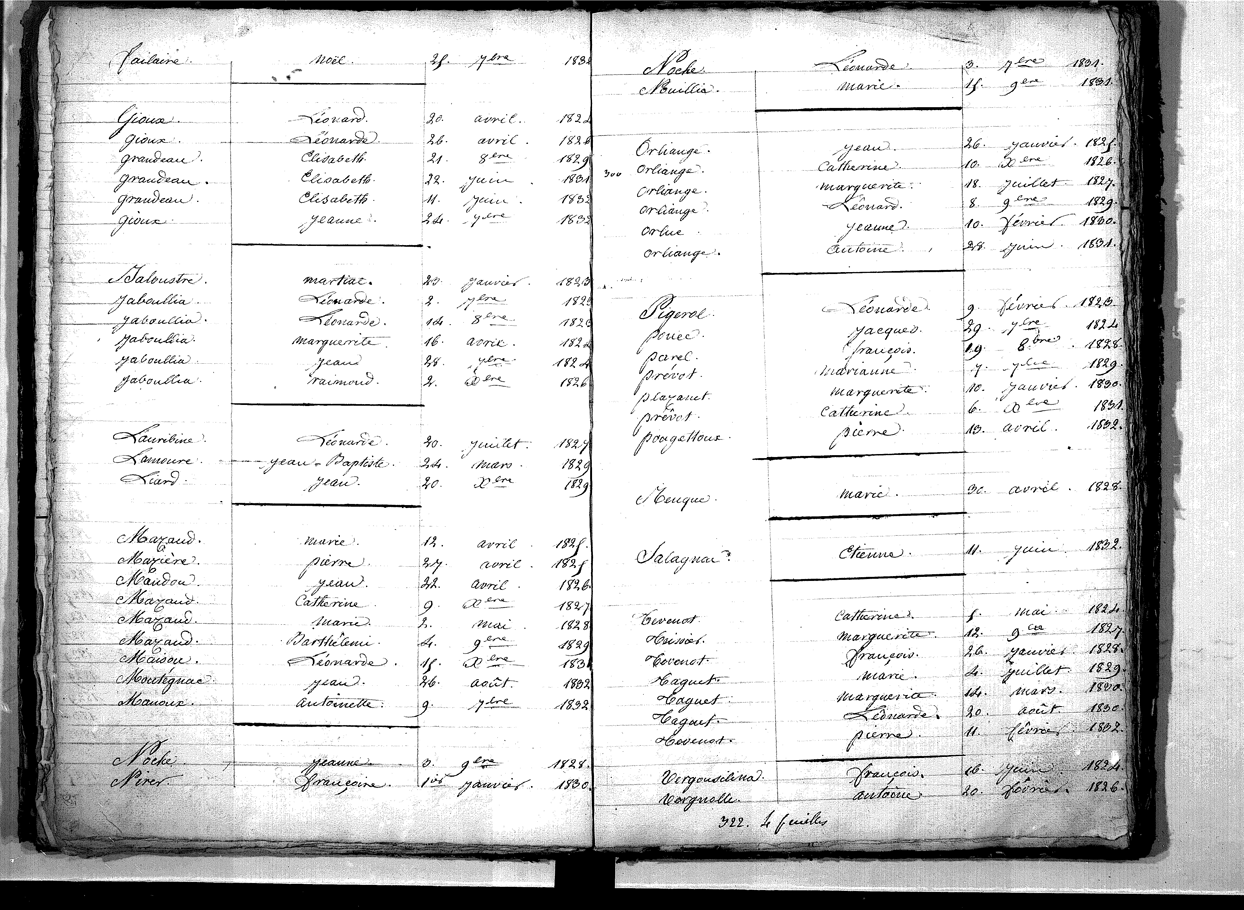 failaire noël. 25. 7bre 183
Gioux. Léonard. 20. avril. 1824
gioux. Léonarde. 26. avril. 1826
grandeau. Elisabeth. 21. 8bre 1829
grandeau. Elisabeth. 22. juin 1831
grandeau. Elisabeth. 11. juin. 1832
gioux. jeanne. 24. 7bre 1832
Jaloustre. martial. 20. janvier. 1823
jaboullia. Léonarde. 2. 7bre 1823
jaboullia. Léonarde. 14. 8bre 1823
jaboullia. marguerite. 16. avril. 1824
jaboullia. jean. 28. 7bre 1824
jaboullia. raimond. 2. Xbre 1826
Lauribine. Léonarde. 20. juillet. 1827
Lamoure. jean-Baptiste. 24. mars. 1829
Liard. jean. 20. Xbre 1829
Mazaud. marie. 12. avril. 1825.
Mazière. pierre. 27. avril. 1825
Maudou. jean. 22. avril. 1826.
Mazaud. Catherine. 9. Xbre 1827
Mazaud. marie. 2. mai. 1828
Mazaud. Barthélemi. 4. 9bre 1829
Maison. Léonarde. 15. Xbre 183
Montégnac. jean. 26. août. 1832
Manoux. antoinette. 9. 7bre 1832
Noche. jeanne. 3. 9bre 1828.
françoise. 1er janvier. 1830
Noche. Léonarde. 3. 7bre 1831.
Nouillia. marie. 15. 9bre 1831
Orliange. jean. 26. janvier. 1825.
300 orliange. Catherine. 10. Xbre 1826.
orliange. marguerite. 18. juillet. 1827.
orliange. Léonard. 8. 9bre 1829.
orluc. jeanne. 10. février. 1830.
orliange. antoine. 28. juin. 1831.
Pigerol. Léonarde. 9. février. 1823.
jacques. 29. 7bre 1824
parel. françois. 19. 8bre 1828.
prévot. marianne. 7. 7bre 1829.
plazanet. marguerite. 10. janvier. 1830.
prévot. Catherine. 6. Xbre 1831.
pougettoux. pierre. 13. avril. 1832.
marie. 30. avril. 1828.
Salagnac. Etienne. 11. juin. 1832.
tevenot. Catherine. 5. mai. 1824.
marguerite. 12. 9bre 1827.
tevenot. françois. 26. janvier. 1828.
taguet. marie. 4. juillet. 1829.
taguet. marguerite. 14. mars. 1830.
taguet. Léonarde. 20. août. 1830.
tevenot. pierre. 11. février. 1832.
françois. 16. juin. 1824.
Vergnolle. antoine. 20. février. 1826.
322. 4 feuilles